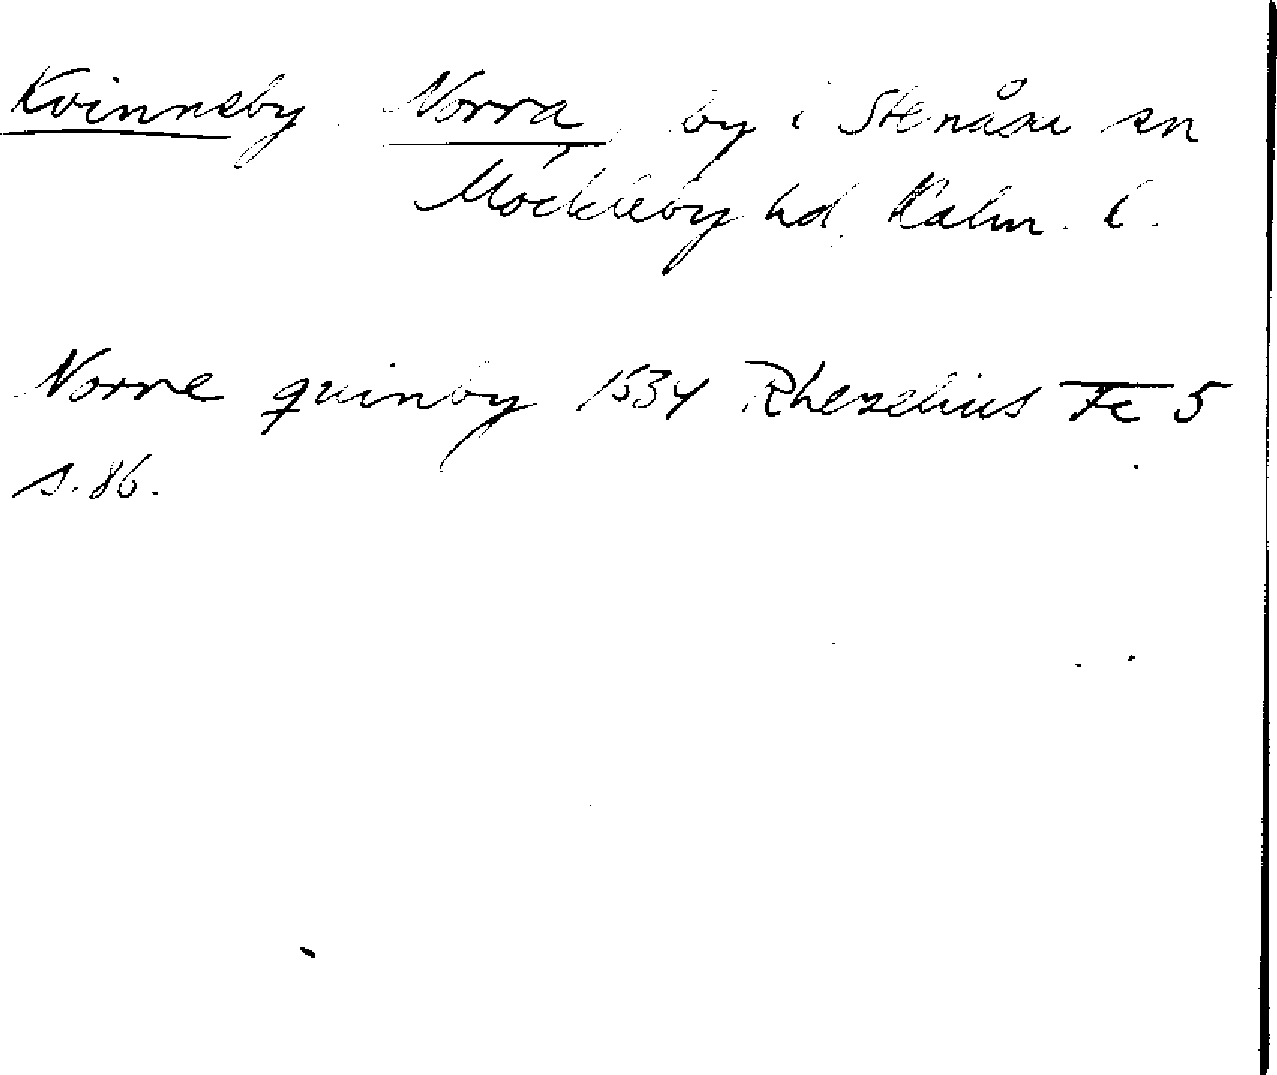 Kvinnsby Norra, by i Stenåsa sn
Möckleby hd. Kalm. l.
Norre quinby 1534 Rhezelius Fc 5
s. 86.